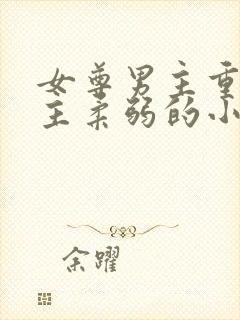 女尊男主重
主柔弱的小
余躍